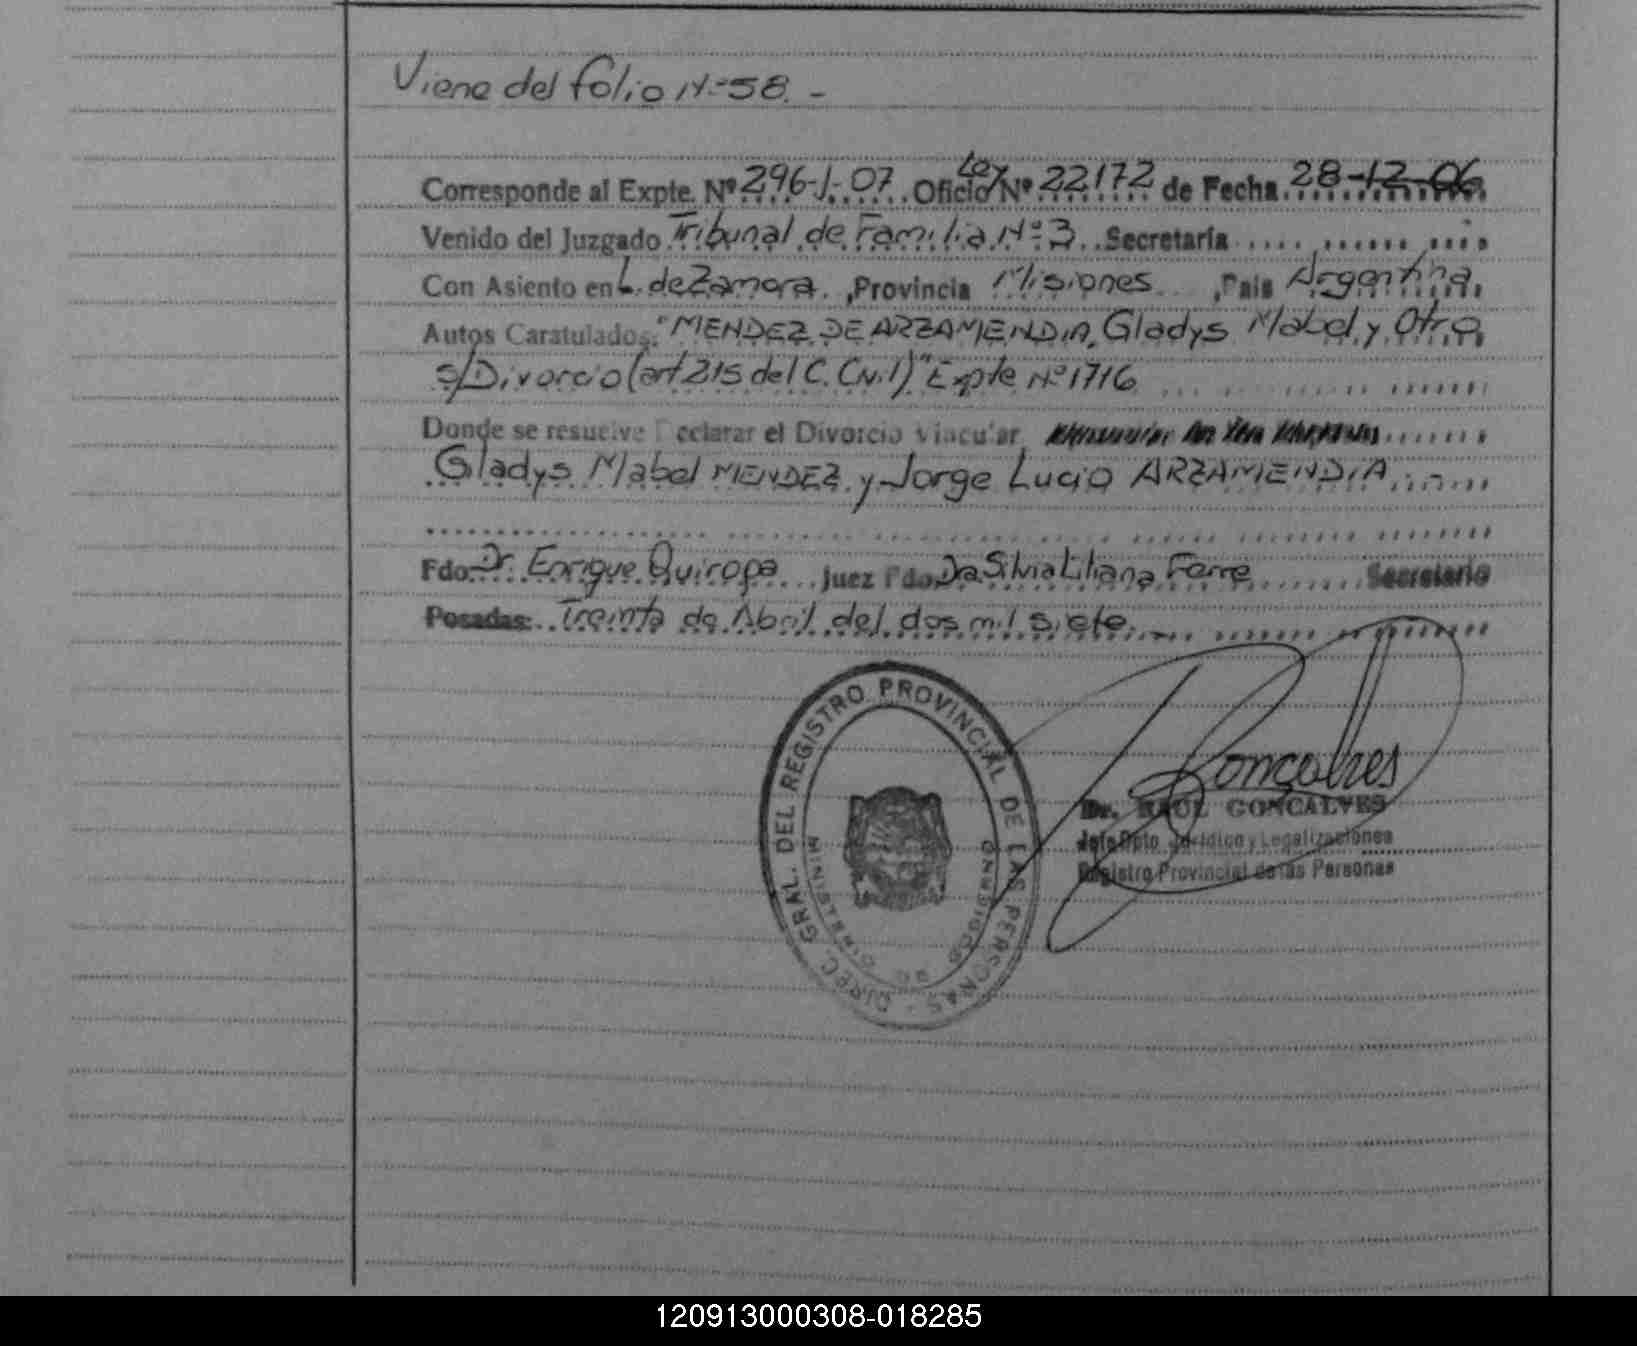 Viene del folio N-58.-
Corresponde al Expte. Nº 296-J-07. Oficio Ley Nº 22172 de Fecha 28-12-06
Venido del Juzgado Tribunal de Familia Nº 3 Secretaría
Con Asiento en L. de Zamora, Provincia Misiones, País Argentina,
Autos Caratulados: "MENDEZ DE ARZAMENDIA, Gladys Mabel y Otro
s/Divorcio (art 215 del C. Civil)" Expte Nº 1716
Donde se resuelve Declarar el Divorcio Vincular
Gladys Mabel MENDEZ y Jorge Lucio ARZAMENDIA
Fdo. Dr. Enrique Quiroga Juez Fdo. Dra Silvia Liliana Ferre Secretario
Posadas: Treinta de Abril del dos mil siete.
DIREC. GRAL. DEL REGISTRO PROVINCIAL DE LAS PERSONAS
MINISTERIO DE GOBIERNO
Goncalves
Dr. RAUL GONCALVES
Jefe Dpto. Jurídico y Legalizaciones
Registro Provincial de las Personas
120913000308-018285